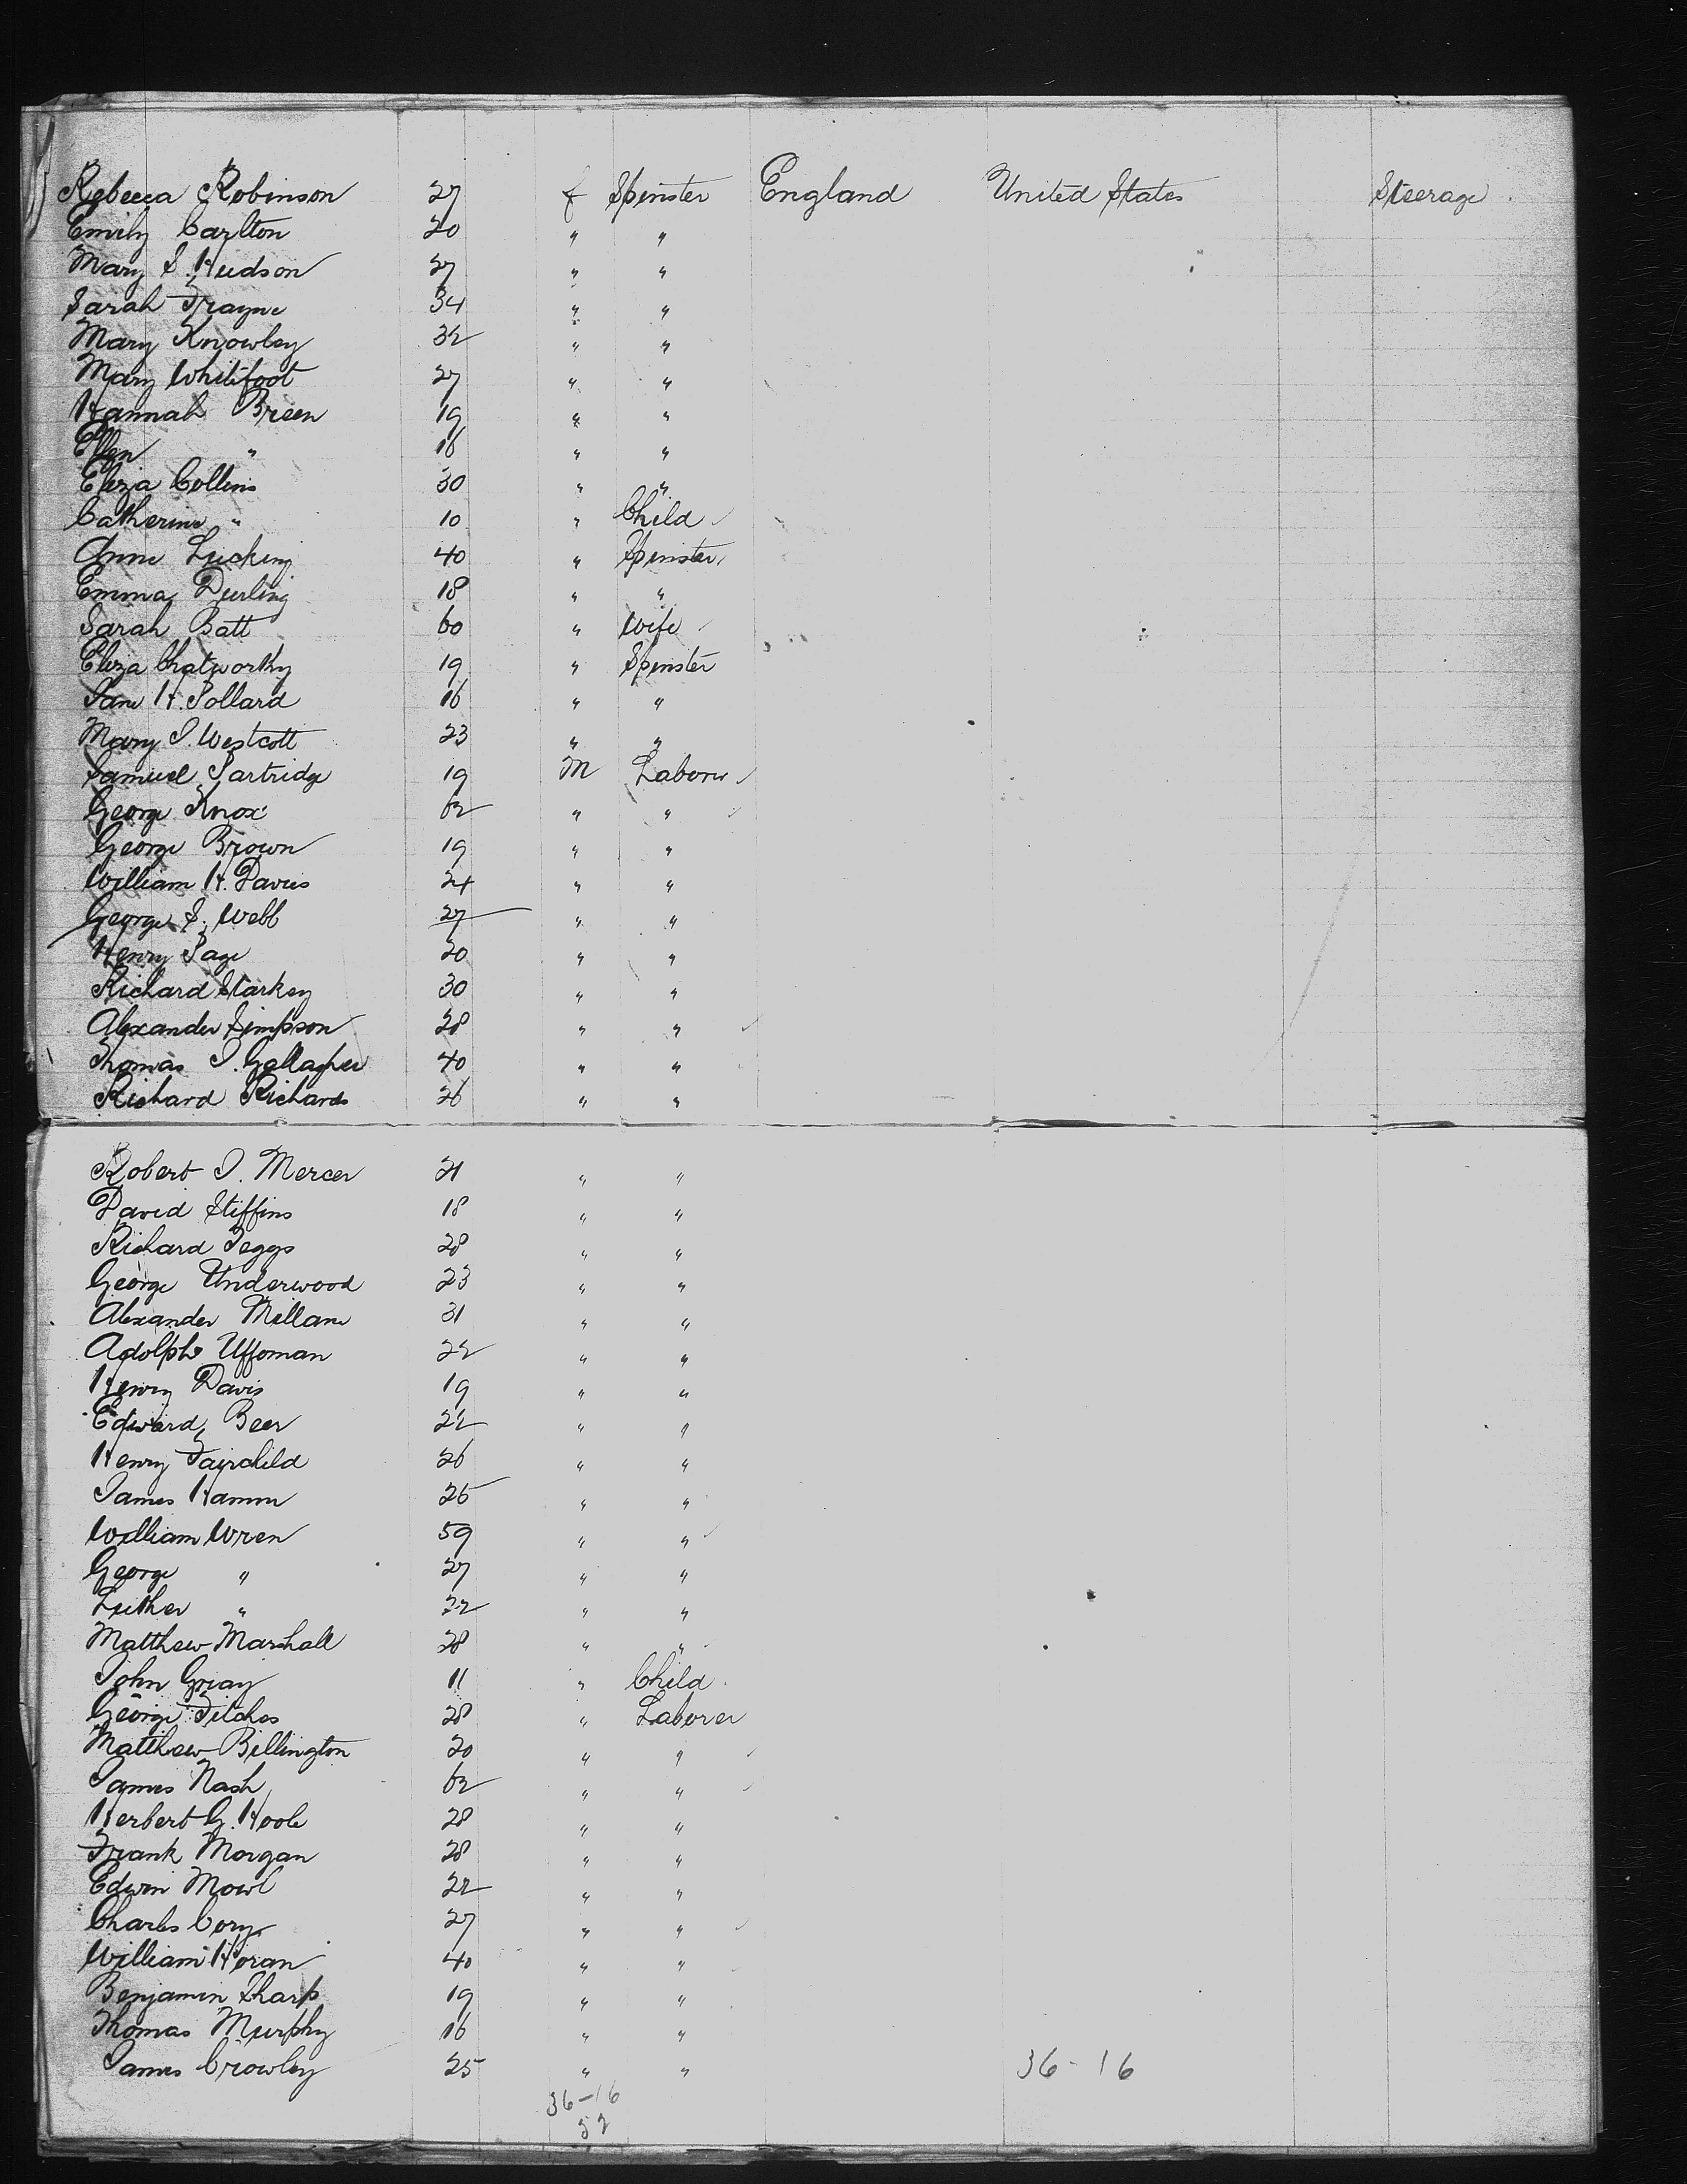 Rebecca Robinson 27 f Spinster England United States Steerage
Emily Carlton 20 " "
Mary S. Hudson 27 " "
Sarah Frayne 34 " "
Mary Knowley 32 " "
Mary Whitefoot 27 " "
Hannah Breen 19 " "
Ellen " 16 " "
Eliza Collins 30 " "
Catherine " 10 " Child
Anne Lucking 40 " Spinster
Emma Durling 18 " "
Sarah Batt 60 " Wife
Eliza Chatworthy 19 " Spinster
Jane H. Pollard 16 " "
Mary J. Westcott 23 " "
Samuel Partridge 19 M Laborer
George Knox 62 " "
George Brown 19 " "
William H. Davies 24 " "
George S. Webb 27 " "
Henry Page 20 " "
Richard Starkey 30 " "
Alexander Simpson 28 " "
Thomas J. Gallagher 40 " "
Richard Richards 26 " "
Robert J. Mercer 21 " "
David Stiffins 18 " "
Richard Teggs 28 " "
George Underwood 23 " "
Alexander Millane 31 " "
Adolphe Uffoman 22 " "
Henry Davis 19 " "
Edward Beer 22 " "
Henry Fairchild 26 " "
James Hamm 25 " "
William Wren 59 " "
George " 27 " "
Luther " 22 " "
Matthew Marshall 28 " "
John Gray 11 " Child
George Filches 28 " Laborer
Matthew Billington 20 " "
James Nash 62 " "
Herbert G. Hoole 28 " "
Frank Morgan 28 " "
Edwin Mowl 22 " "
Charles Cory 27 " "
William Horan 40 " "
Benjamin Sharp 19 " "
Thomas Murphy 16 " "
James Crowley 25 " " 36-16
36-16
52